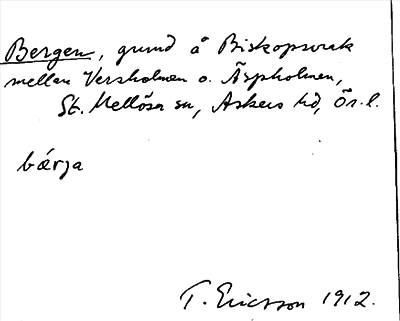 Bergen, grund å Biskopsvrak
mellan Versholmen o. Äspholmen,
St. Mellösa sn, Askers hd, Ör. l.
bærja
T. Ericsson 1912.